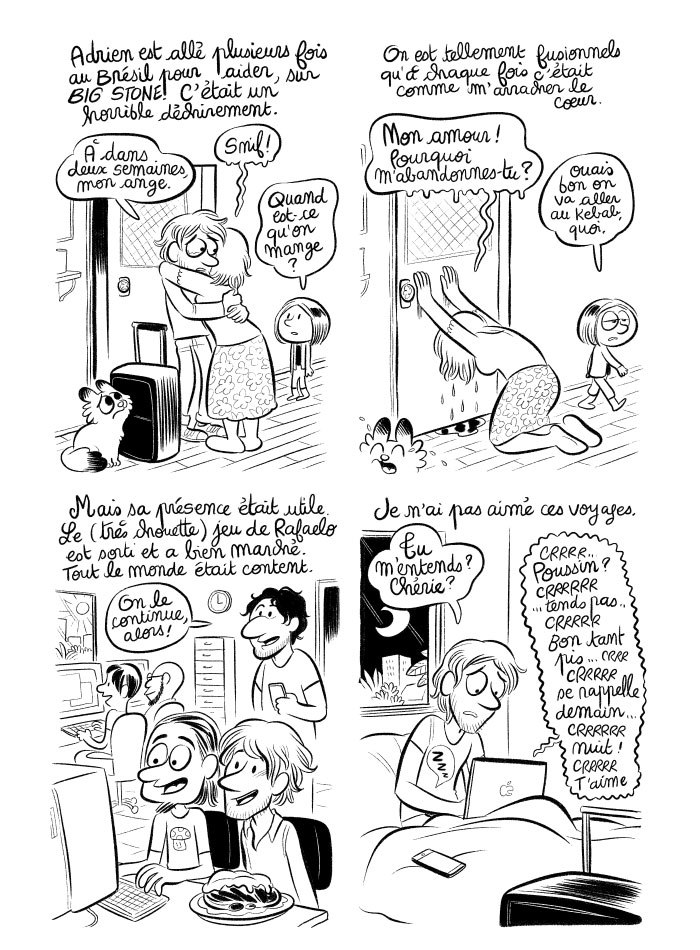 Adrien est allé plusieurs fois
au Brésil pour l'aider, sur
BIG STONE! C'était un
horrible déchirement.
À dans
deux semaines,
mon ange.
Snif!
Quand
est-ce
qu'on
mange
?
On est tellement fusionnels
qu'à chaque fois c'était
comme m'arracher le
cœur.
Mon amour!
Pourquoi
m'abandonnes-tu?
Ouais
bon on
va aller
au kebab,
quoi.
Mais sa présence était utile.
Le (très chouette) jeu de Rafaelo
est sorti et a bien marché.
Tout le monde était content.
On le
continue,
alors!
Je n'ai pas aimé ces voyages.
Tu
m'entends?
Chérie?
CRRRR..
Poussin?
CRRRRRR
...tends pas..
CRRRRR
Bon tant
pis... CRRR
CRRRRR
se rappelle
demain...
CRRRRRR
nuit!
CRRRRR
T'aime
NNN